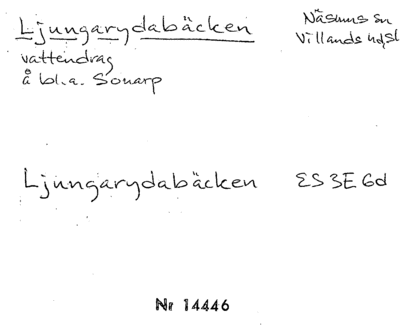 Ljungarydabäcken
Näsums sn
Villands hdsl
vattendrag
å bl.a. Sonarp
Ljungarydabäcken
ES 3E 6d
Nr 14446